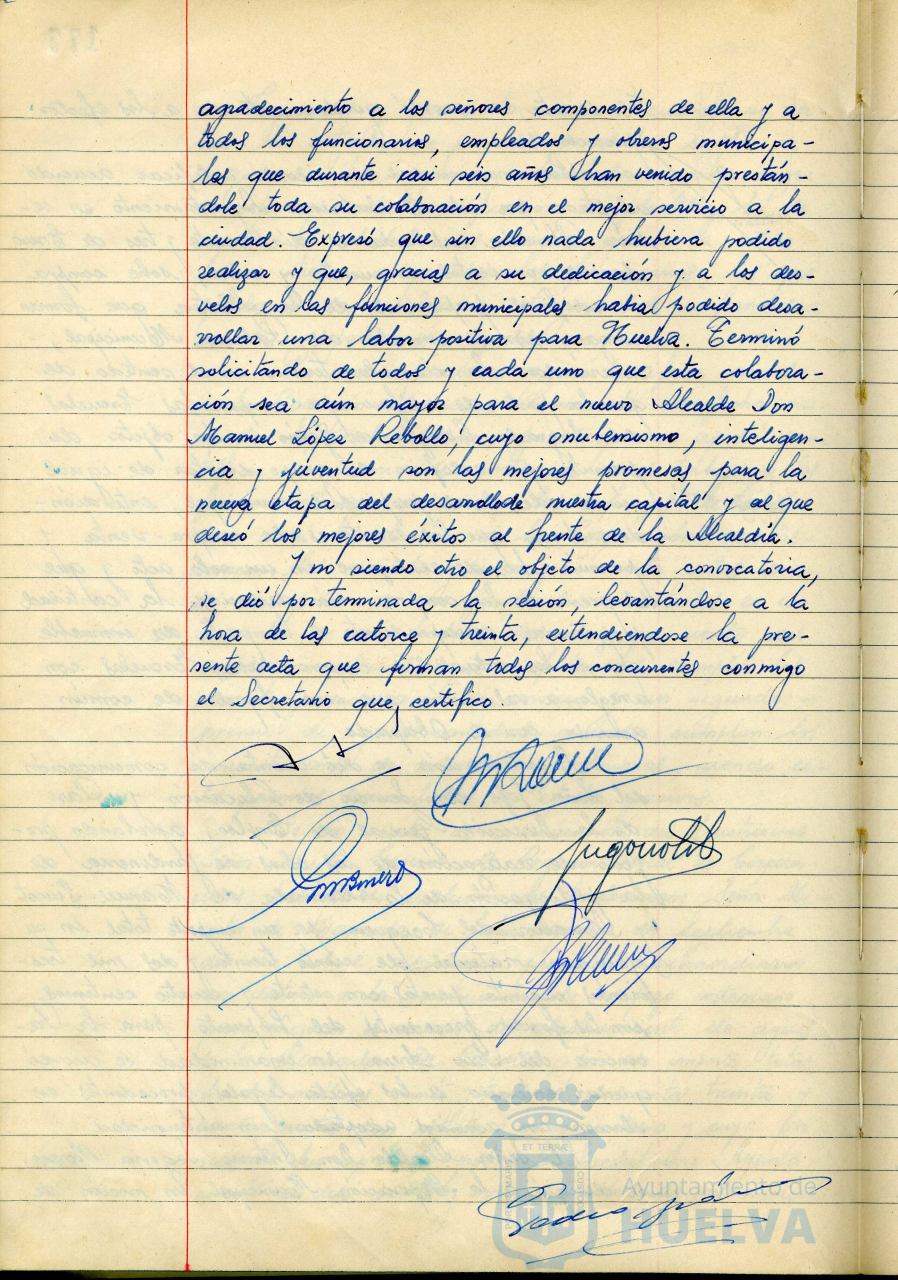 agradecimiento a los señores componentes de ella y a
todos los funcionarios, empleados y obreros municipa-
les que durante casi seis años han venido prestán-
dole toda su colaboración en el mejor servicio a la
ciudad. Expresó que sin ello nada hubiera podido
realizar y que, gracias a su dedicación y a los des-
velos en las funciones municipales habia podido desa-
rrollar una labor positiva para Huelva. Terminó
solicitando de todos y cada uno que esta colabora-
ción sea aún mayor para el nuevo Alcalde Don
Manuel López Rebollo, cuyo onubensismo, inteligen-
cia y juventud son las mejores promesas para la
nueva etapa del desarrollode nuestra capital y al que
deseó los mejores éxitos al frente de la Alcaldia.
Y no siendo otro el objeto de la convocatoria,
se dió por terminada la sesión, levantándose a la
hora de las catorce y treinta, extendiendose la pre-
sente acta que firman todos los concurrentes conmigo
el Secretario que, certifico.
ET TERRÆ
PORTUS MARIS
CUSTODIA
Ayuntamiento de
HUELVA